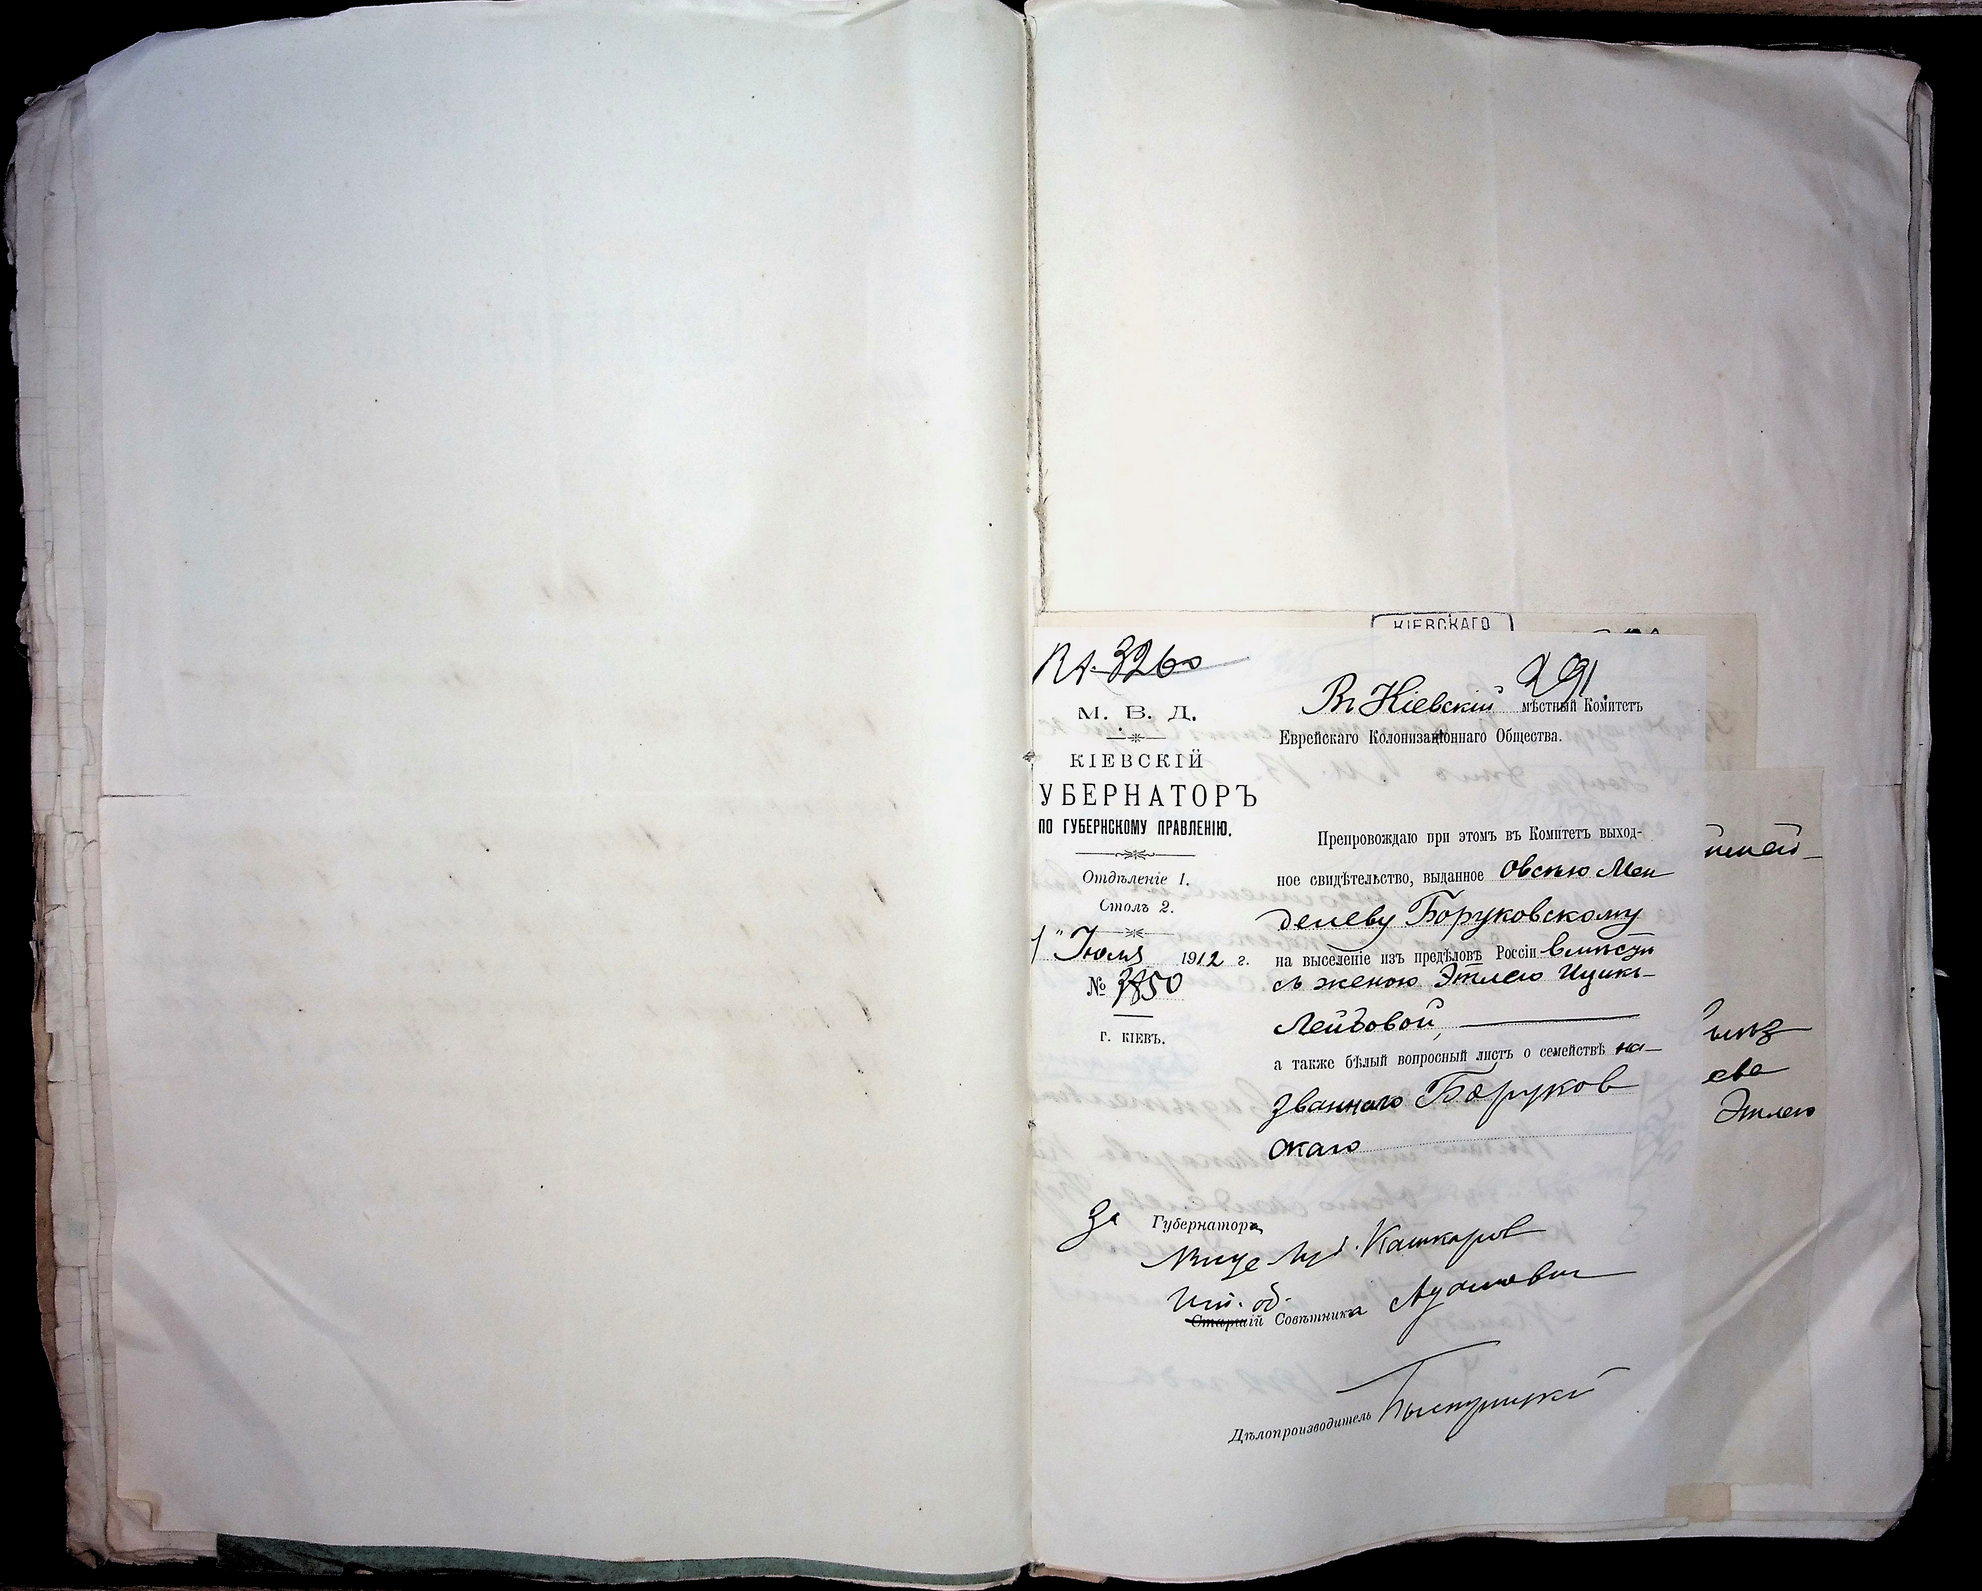 КІЕВСКАГО
3260
291
М. В. Д.
КІЕВСКІЙ
УБЕРНАТОРЪ
ПО ГУБЕРНСКОМУ ПРАВЛЕНІЮ.
Отдѣленіе 1.
Столъ 2.
" Іюля 1912 г.
№ 3850
г. КІЕВЪ.
Въ Кіевскій мѣстный Комитетъ
Еврейскаго Колонизаціоннаго Общества.
Препровождаю при этомъ въ Комитетъ выход-
ное свидѣтельство, выданное Овсѣю Мен
делеву Боруковскому
на выселеніе изъ предѣловъ Россіи вмѣстѣ
съ женою Этлею Ицикъ-
Лейбовой,
а также бѣлый вопросный листъ о семействѣ на-
званнаго Боруков
скаго
За Губернатора,
Вице Губ. Кашкаров
Исп. об.
Старшій Совѣтника
Дѣлопроизводитель
ева
Этлею